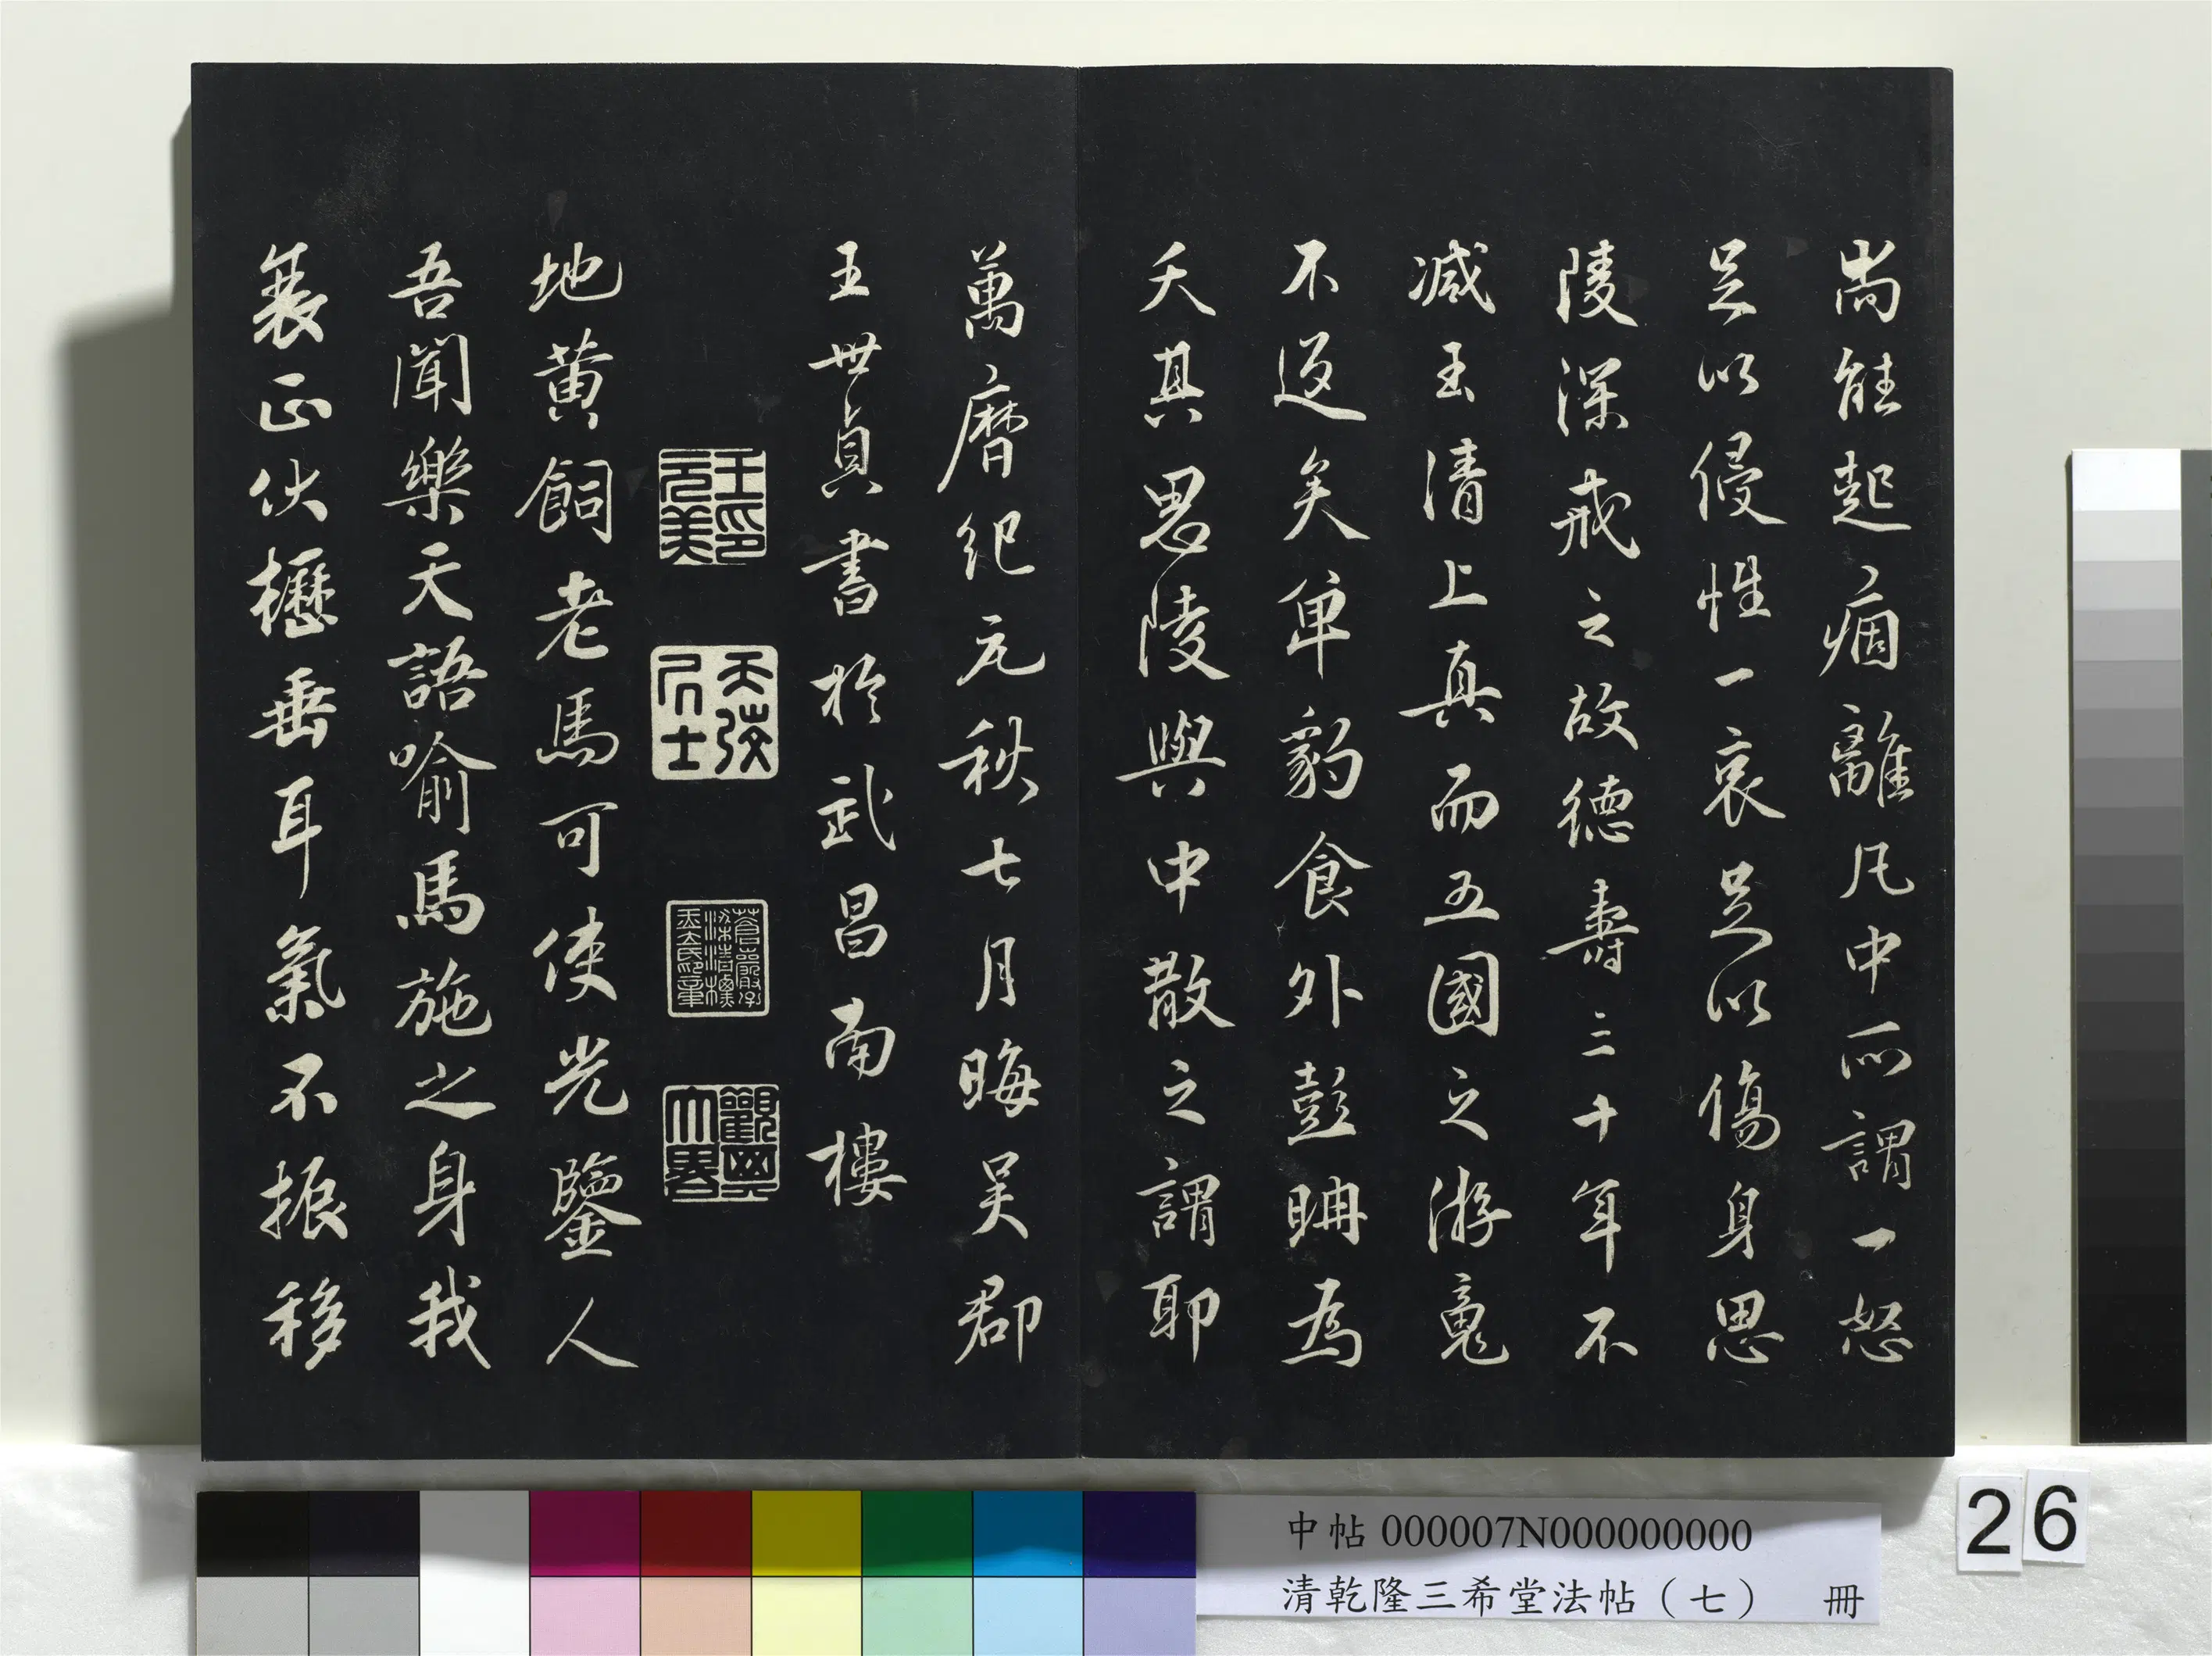 尚能起痼離凡中所謂一怒
足以侵性一哀足以傷身思
陵深戒之故德壽三十年不
減玉清上真而五國之游魂
不返矣單豹食外彭聃為
夭其思陵與中散之謂耶
萬曆紀元秋七月晦吳郡
王世貞書於武昌南樓
王印元美
天弢居士
蒼巖子梁清標玉立氏印章
觀其大略
地黃飼老馬可使光鑒人
吾聞樂天語喻馬施之身我
衰正伏櫪垂耳氣不振移
中帖 000007N000000000
清乾隆三希堂法帖（七） 冊
26